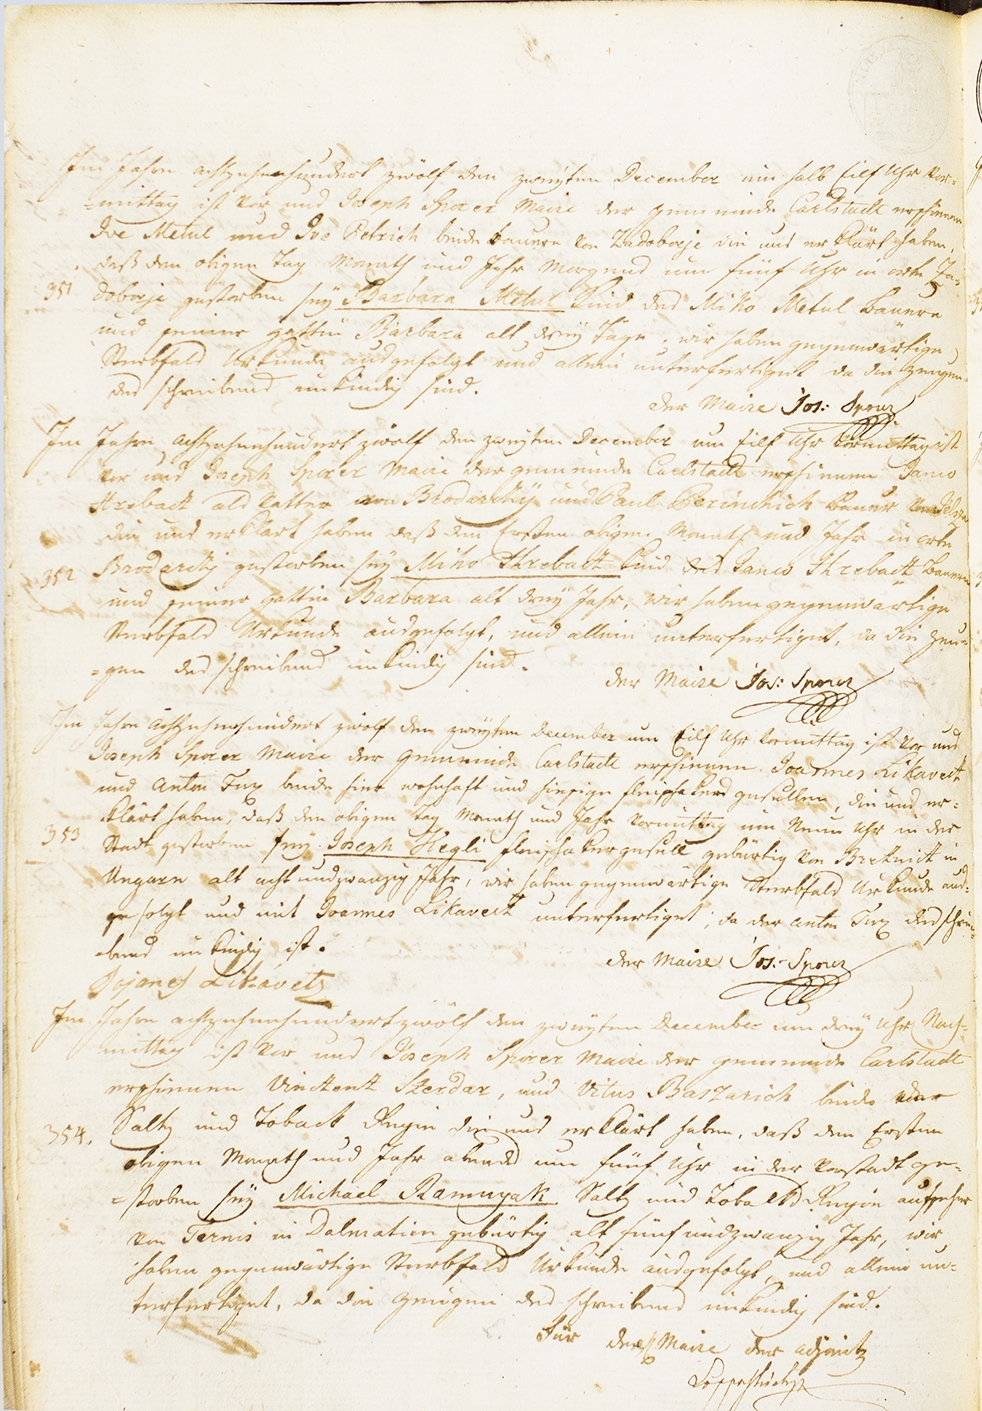 Im Jahre achtzehnhundert zwölf den zweyten December um halb eilf Uhr Vor=
=mittag ist vor uns Joseph Sporer Maire der gemeinde Carlstadt erschienen
Ive Metul und Ivo Petrich beide bauern von Zadoborje die uns erklärt haben,
daß den obigen Tag Monath und Jahr Morgens um fünf Uhr in orte Za=
351 doborje gestorben sey Barbara Metul kind des Miko Metul bauern
und seiner gattin Barbara alt drey Tage, wir haben gegenwärtige
Sterbfalls Urkunde ausgefolgt und allein unterfertiget da die zeugen
des schreibens unkündig sind.
der Maire Jos: Sporer
Im Jahre Achtzehnhundert zwölf den zweyten December um Eilf Uhr Vormittag ist
vor uns Joseph Sporer Maire der gemeinde Carlstadt erschienen Janco
Hrebach als Vatter von Brodarczy und Paul bauer von
die uns erklärt haben daß den Ersten obigen Monath und Jahr in orte
352 Brodarczy gestorben sey Miko Hreback kind des Janco Hreback bauern
und seiner gattin Barbara alt drey Jahr, wir haben gegenwärtige
Sterbfalls Urkunde ausgefolgt, und allein unterfertiget, da die zeu=
=gen des schreibens unkündig sind.
der Maire Jos: Sporer
Im Jahre Achtzehnhundert zwölf den zweyten December um Eilf Uhr Vormittag ist vor uns
Joseph Sporer Maire der gemeinde Carlstadt erschienen Joannes Likavetz
und Anton Tux beide hier wohnhaft und hiesige fleischakers gesellen, die uns er=
klärt haben, daß den obigen Tag Monath und Jahr Vormittag um Neun Uhr in der
353 Stadt gestorben sey Joseph Hegli fleischakergesell gebürtig von in
Ungarn alt acht und zwanzig Jahr, wir haben gegenwärtige Sterbfalls Urkunde aus=
gefolgt und mit Joannes Likavetz unterfertiget, da der Anton Tux des schrei=
bens unkündig ist.
der Maire Jos: Sporer
Jojanes Likávetz
Im Jahre achtzehnhundertzwölf den zweyten December um drey Uhr Nach=
mittag ist vor uns Joseph Sporer Maire der gemeinde Carlstadt
erschienen Vinctent Skerdar, und Vitus Baszarich beide
354. Saltz und Toback Regie die uns erklärt haben, daß den Ersten
obigen Monath und Jahr abends um fünf Uhr in der Vorstadt ge=
=storben sey Michael Ramuyak Saltz und Toback Regie aufseher
von Ternis in Dalmatien gebürtig alt fünf und zwanzig Jahr, wir
haben gegenwärtige Sterbfalls Urkunde ausgefolgt, und allein un=
terfertiget, da die zeugen des schreibens unkündig sind.
Für den Maire der adjoint